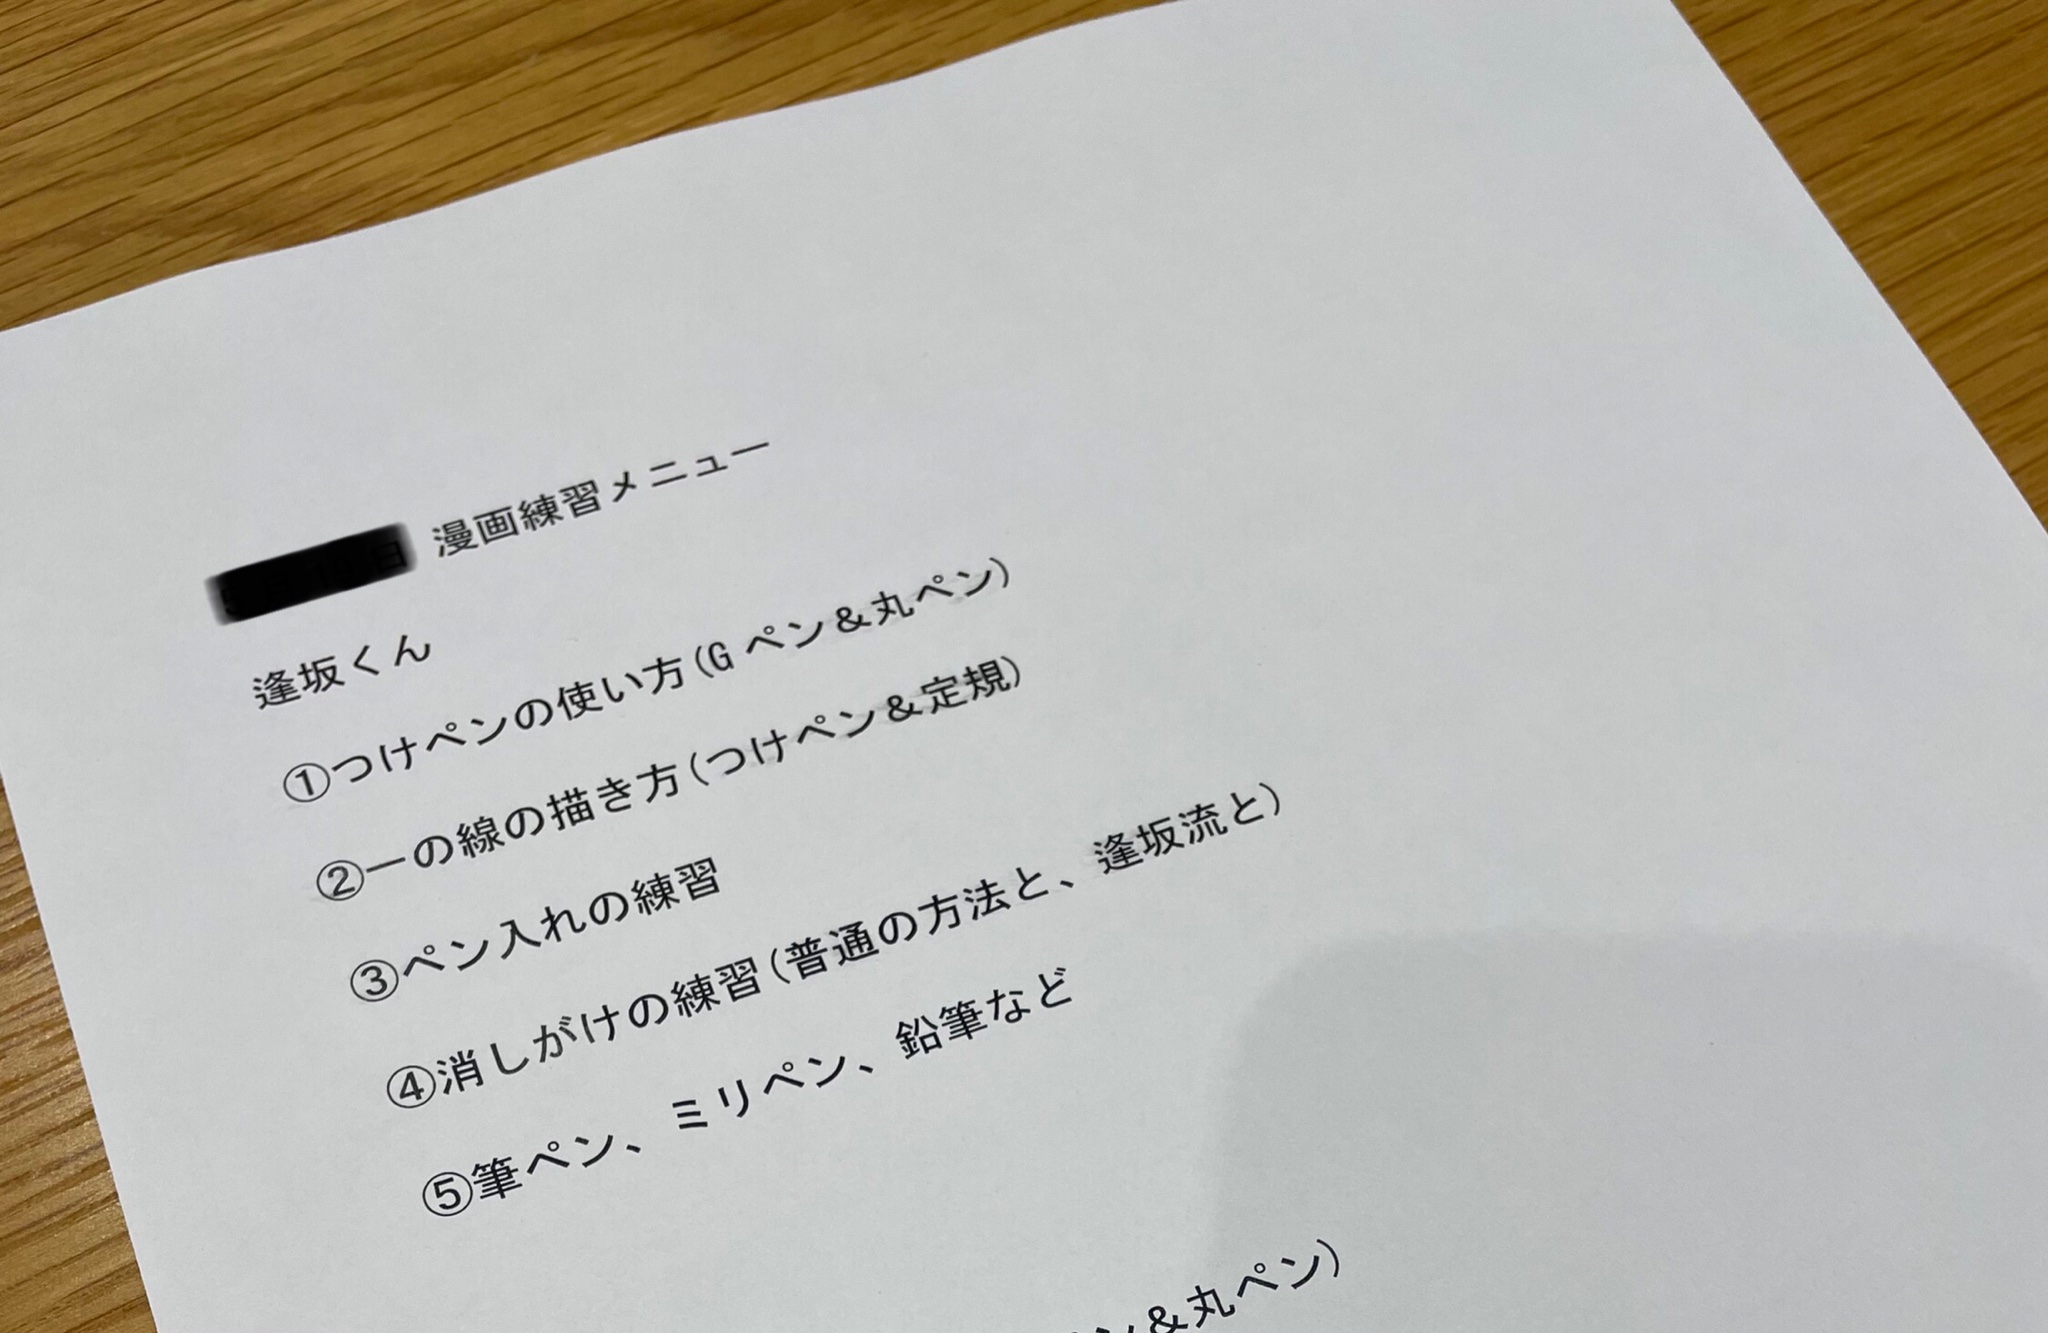 漫画練習メニュー
逢坂くん
①つけペンの使い方(Gペン&丸ペン)
②一の線の描き方(つけペン&定規)
③ペン入れの練習
④消しがけの練習(普通の方法と、逢坂流と)
⑤筆ペン、ミリペン、鉛筆など
ン&丸ペン)